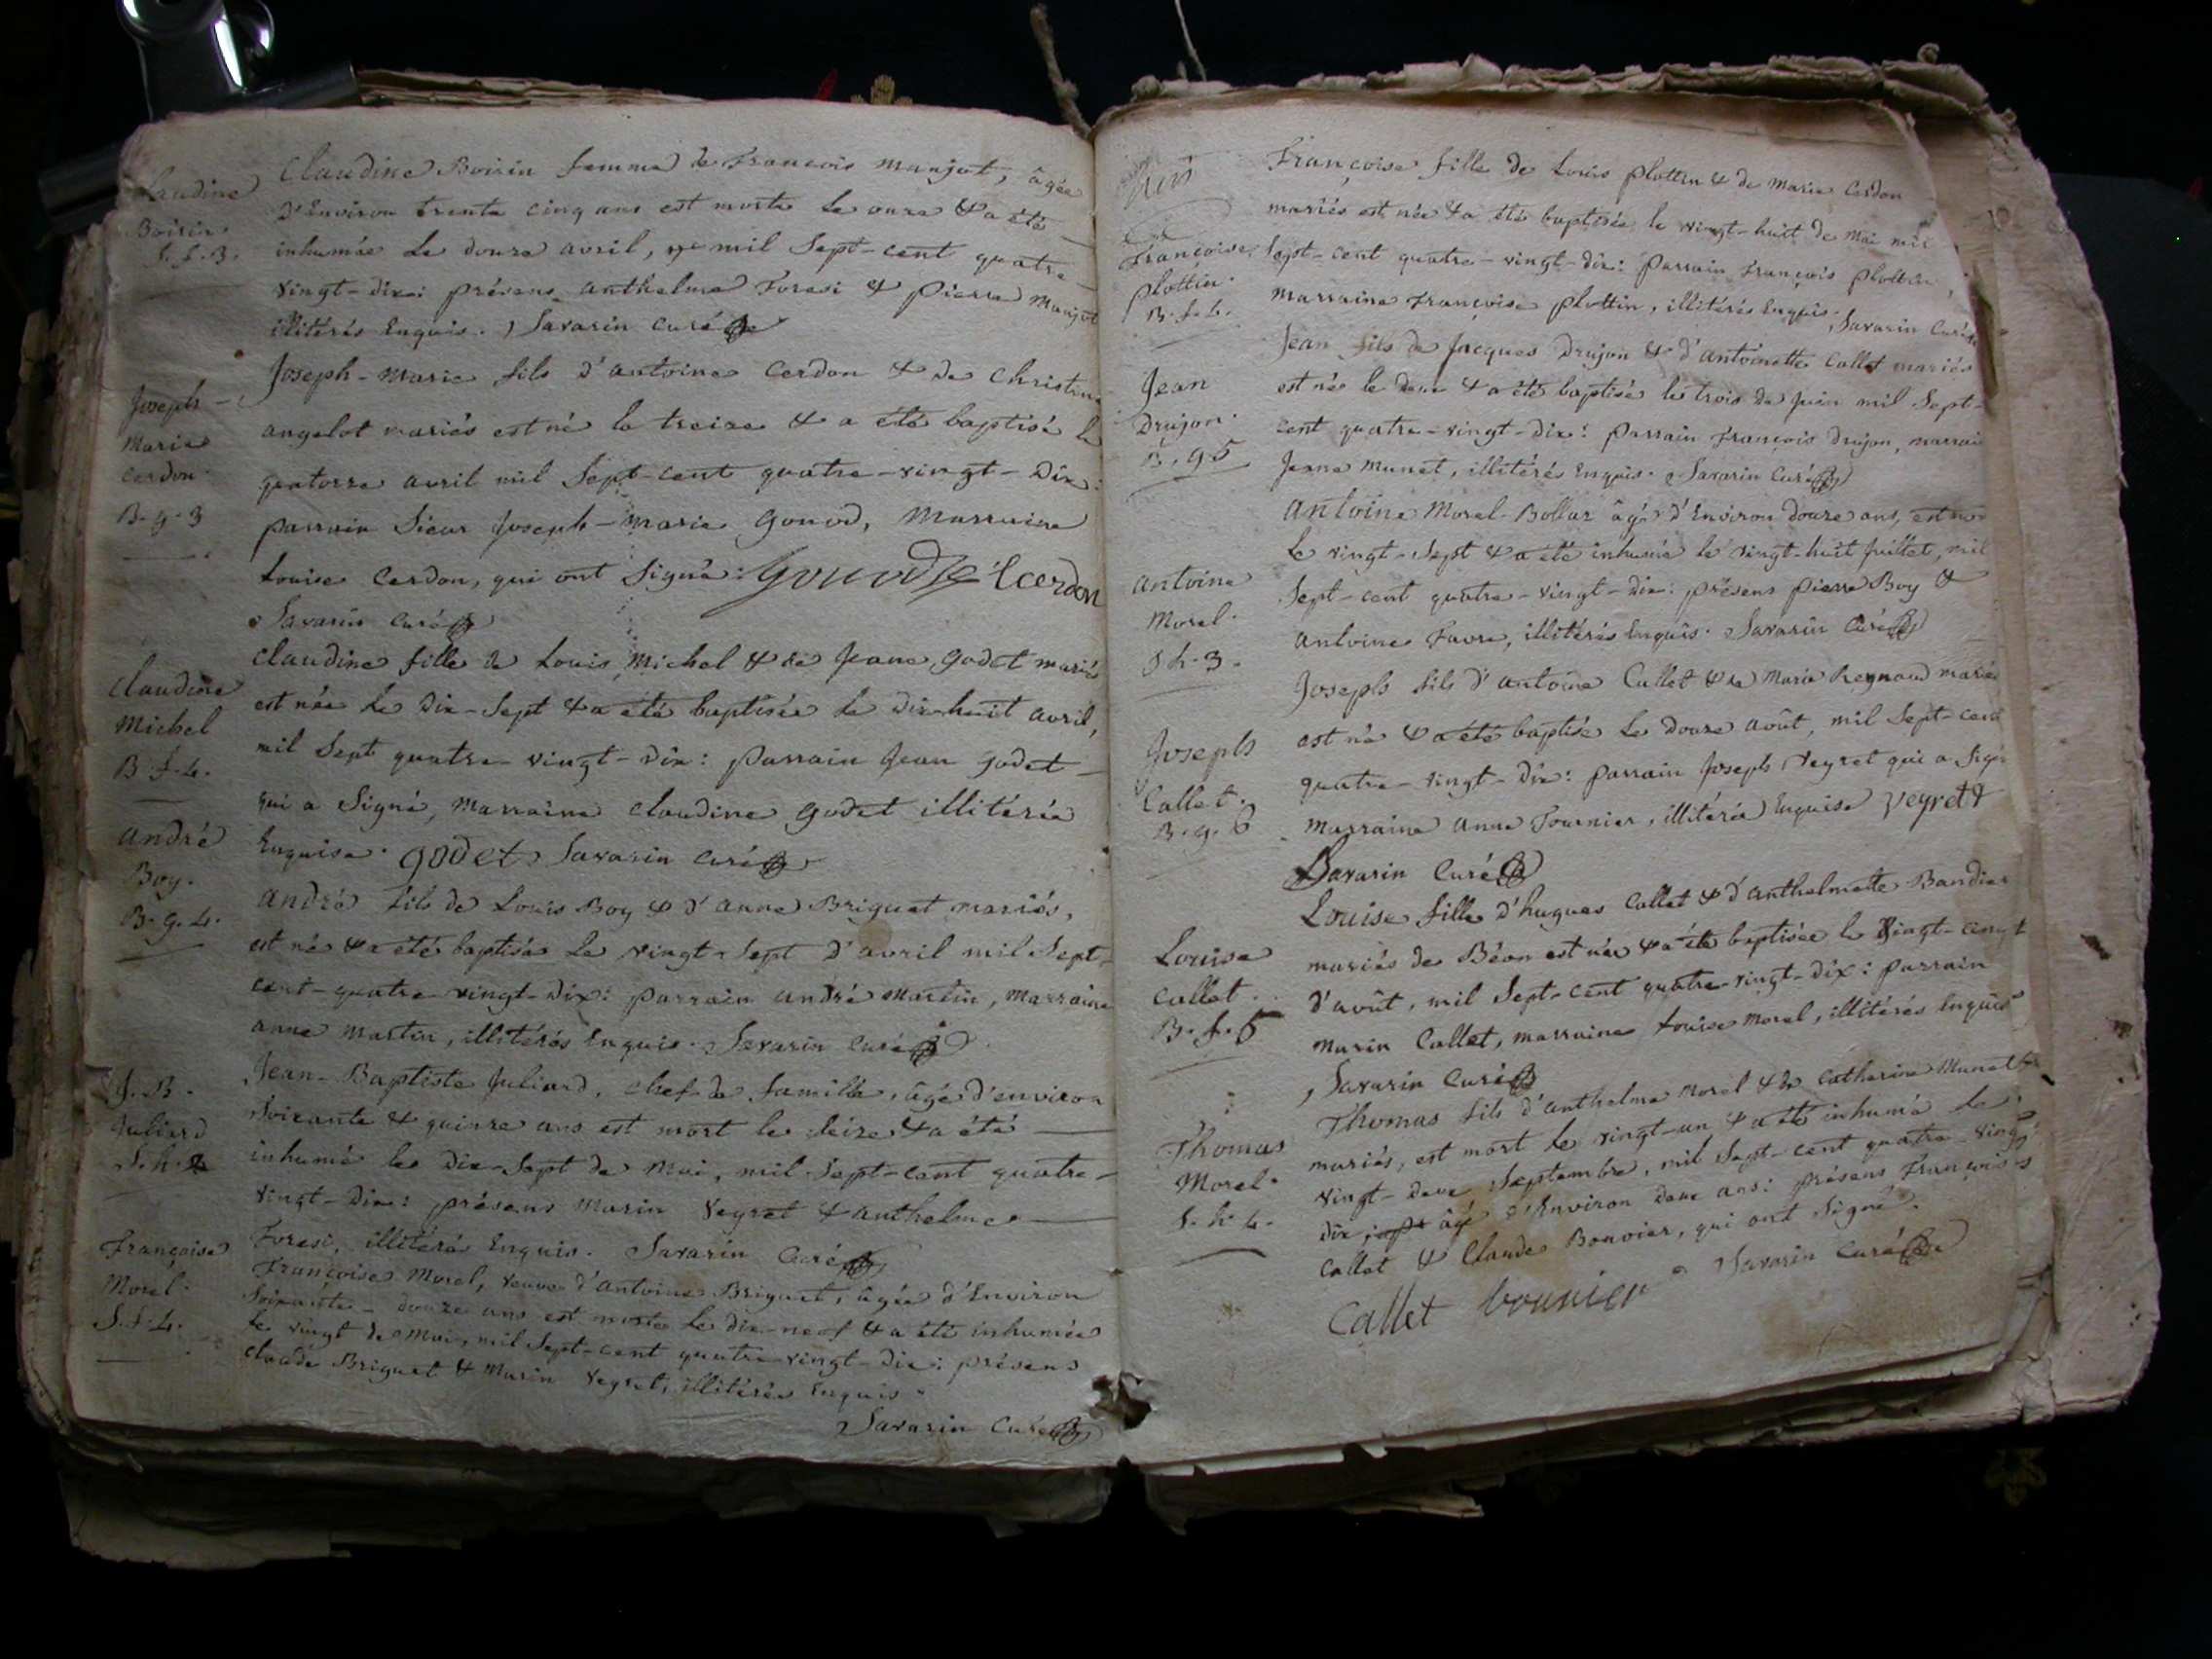 Claudine
Boisin.
S. f. 3.
Claudine Boisin femme de François manjot, âgée
d'Environ trente cinq ans est morte le onze & a été
inhumée le douze avril, mil Sept-cent quatre
vingt-dix: présens anthelme Foresi & pierre manjot
illitérés Enquis. Savarin curé
Joseph-
Marie
Cerdon.
B. g. 3
Joseph-marie fils d'antoine Cerdon & de christine
angelot mariés est né le treize & a été baptisé le
quatorze avril mil Sept-cent quatre-vingt-Dix:
parrain Sieur Joseph-marie Gonod, marraine
Louise Cerdon, qui ont Signé: Gonod L cerdon
Savarin curé
Claudine
Michel
B. f. 4.
Claudine fille de Louis Michel & de Jeane godet mariés
est née le dix-Sept & a été baptisée le dix-huit avril,
mil Sept quatre-vingt-dix: parrain Jean godet
qui a Signé, marraine claudine godet illitérée
Enquise. godet Savarin curé
André
Boy.
B. g. 4.
André fils de Louis Boy & d'anne Briguet mariés,
est né & a été baptisé le vingt-Sept d'avril mil Sept-
cent-quatre-vingt-dix: parrain andré martin, marraine
anne martin, illitérés Enquis. Savarin curé
J. B.
Juliard
S. h. 2
Jean-Baptiste Juliard, chef de famille, âgé d'environ
Soixante & quinze ans est mort le Seize & a été
inhumé le dix-Sept de mai, mil Sept-cent quatre-
vingt-dix: présens marin Veyret & anthelme
Foresi, illitérés Enquis. Savarin Curé
Françoise
Morel.
S. f. 4.
Françoise Morel, veuve d'antoine Briguet, âgée d'Environ
Soixante-douze ans est morte le dix-neuf & a été inhumée
le vingt de mai, mil Sept-cent quatre-vingt-dix: présens
claude Briguet & marin Veyret, illitérés Enquis.
Savarin Curé
Françoise
plottin.
B. f. 4.
Françoise fille de Louis plottin & de marie Cerdon
mariés est née & a été baptisée le vingt-huit de mai mil
Sept-cent quatre-vingt-dix: parrain françois plottin,
marraine françoise plottin, illitérés Enquis. Savarin Curé
Jean
Drujon.
B. g. 5
Jean fils de Jacques Drujon & d'antoinette Callet mariés
est né le deux & a été baptisé le trois de juin mil Sept-
cent quatre-vingt-dix: parrain françois drujon, marrai
Jeane munet, illitérés Enquis. Savarin Curé
Antoine
Morel.
S h. 3.
Antoine Morel-Bollaz âgé d'Environ douze ans, est mo
le vingt-Sept & a été inhumé le vingt-huit juillet, mil
Sept-cent quatre-vingt-dix: présens pierre Boy &
antoine Favre, illitérés Enquis. Savarin Curé
Joseph
Callet.
B. g. 6
Joseph fils d'antoine Callet & de Marie Reynaud mariés
est né & a été baptisé le douze août, mil Sept-cent
quatre-vingt-dix: parrain Joseph Veyret qui a Signé
marraine anne Fournier, illitérée Enquise veyret
Savarin Curé
Louise
Callet.
B. f. 5
Louise fille d'hugues Callet & d'anthelmette Bandier
mariés de Béon est née & a été baptisée le vingt-cinq
d'août, mil Sept-cent quatre-vingt-dix: parrain
marin Callet, marraine Louise morel, illitérés Enquis
Savarin Curé
Thomas
Morel.
S. h. 4.
Thomas fils d'anthelme morel & de Catherine Munet
mariés, est mort le vingt-un & a été inhumé le
vingt-deux Septembre, mil Sept-cent quatre-vingt
dix, âgé d'Environ deux ans: présens François
Callet & Claude Bouvier, qui ont Signé.
Callet bouvier Savarin Curé